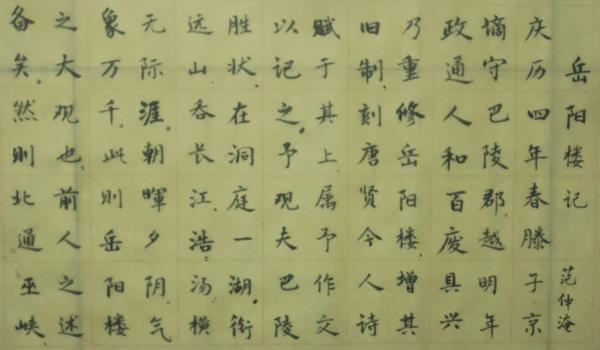 岳阳楼记 范仲淹
庆历四年春滕子京
谪守巴陵郡越明年
政通人和百废具兴
乃重修岳阳楼、增其
旧制、刻唐贤今人诗
赋于其上属予作文
以记之。予观夫巴陵
胜状、在洞庭一湖、衔
远山、吞长江、浩汤横
无际涯。朝暉夕阴气
象万千、此则岳阳楼
之大观也、前人之述
备矣。然则北通巫峡